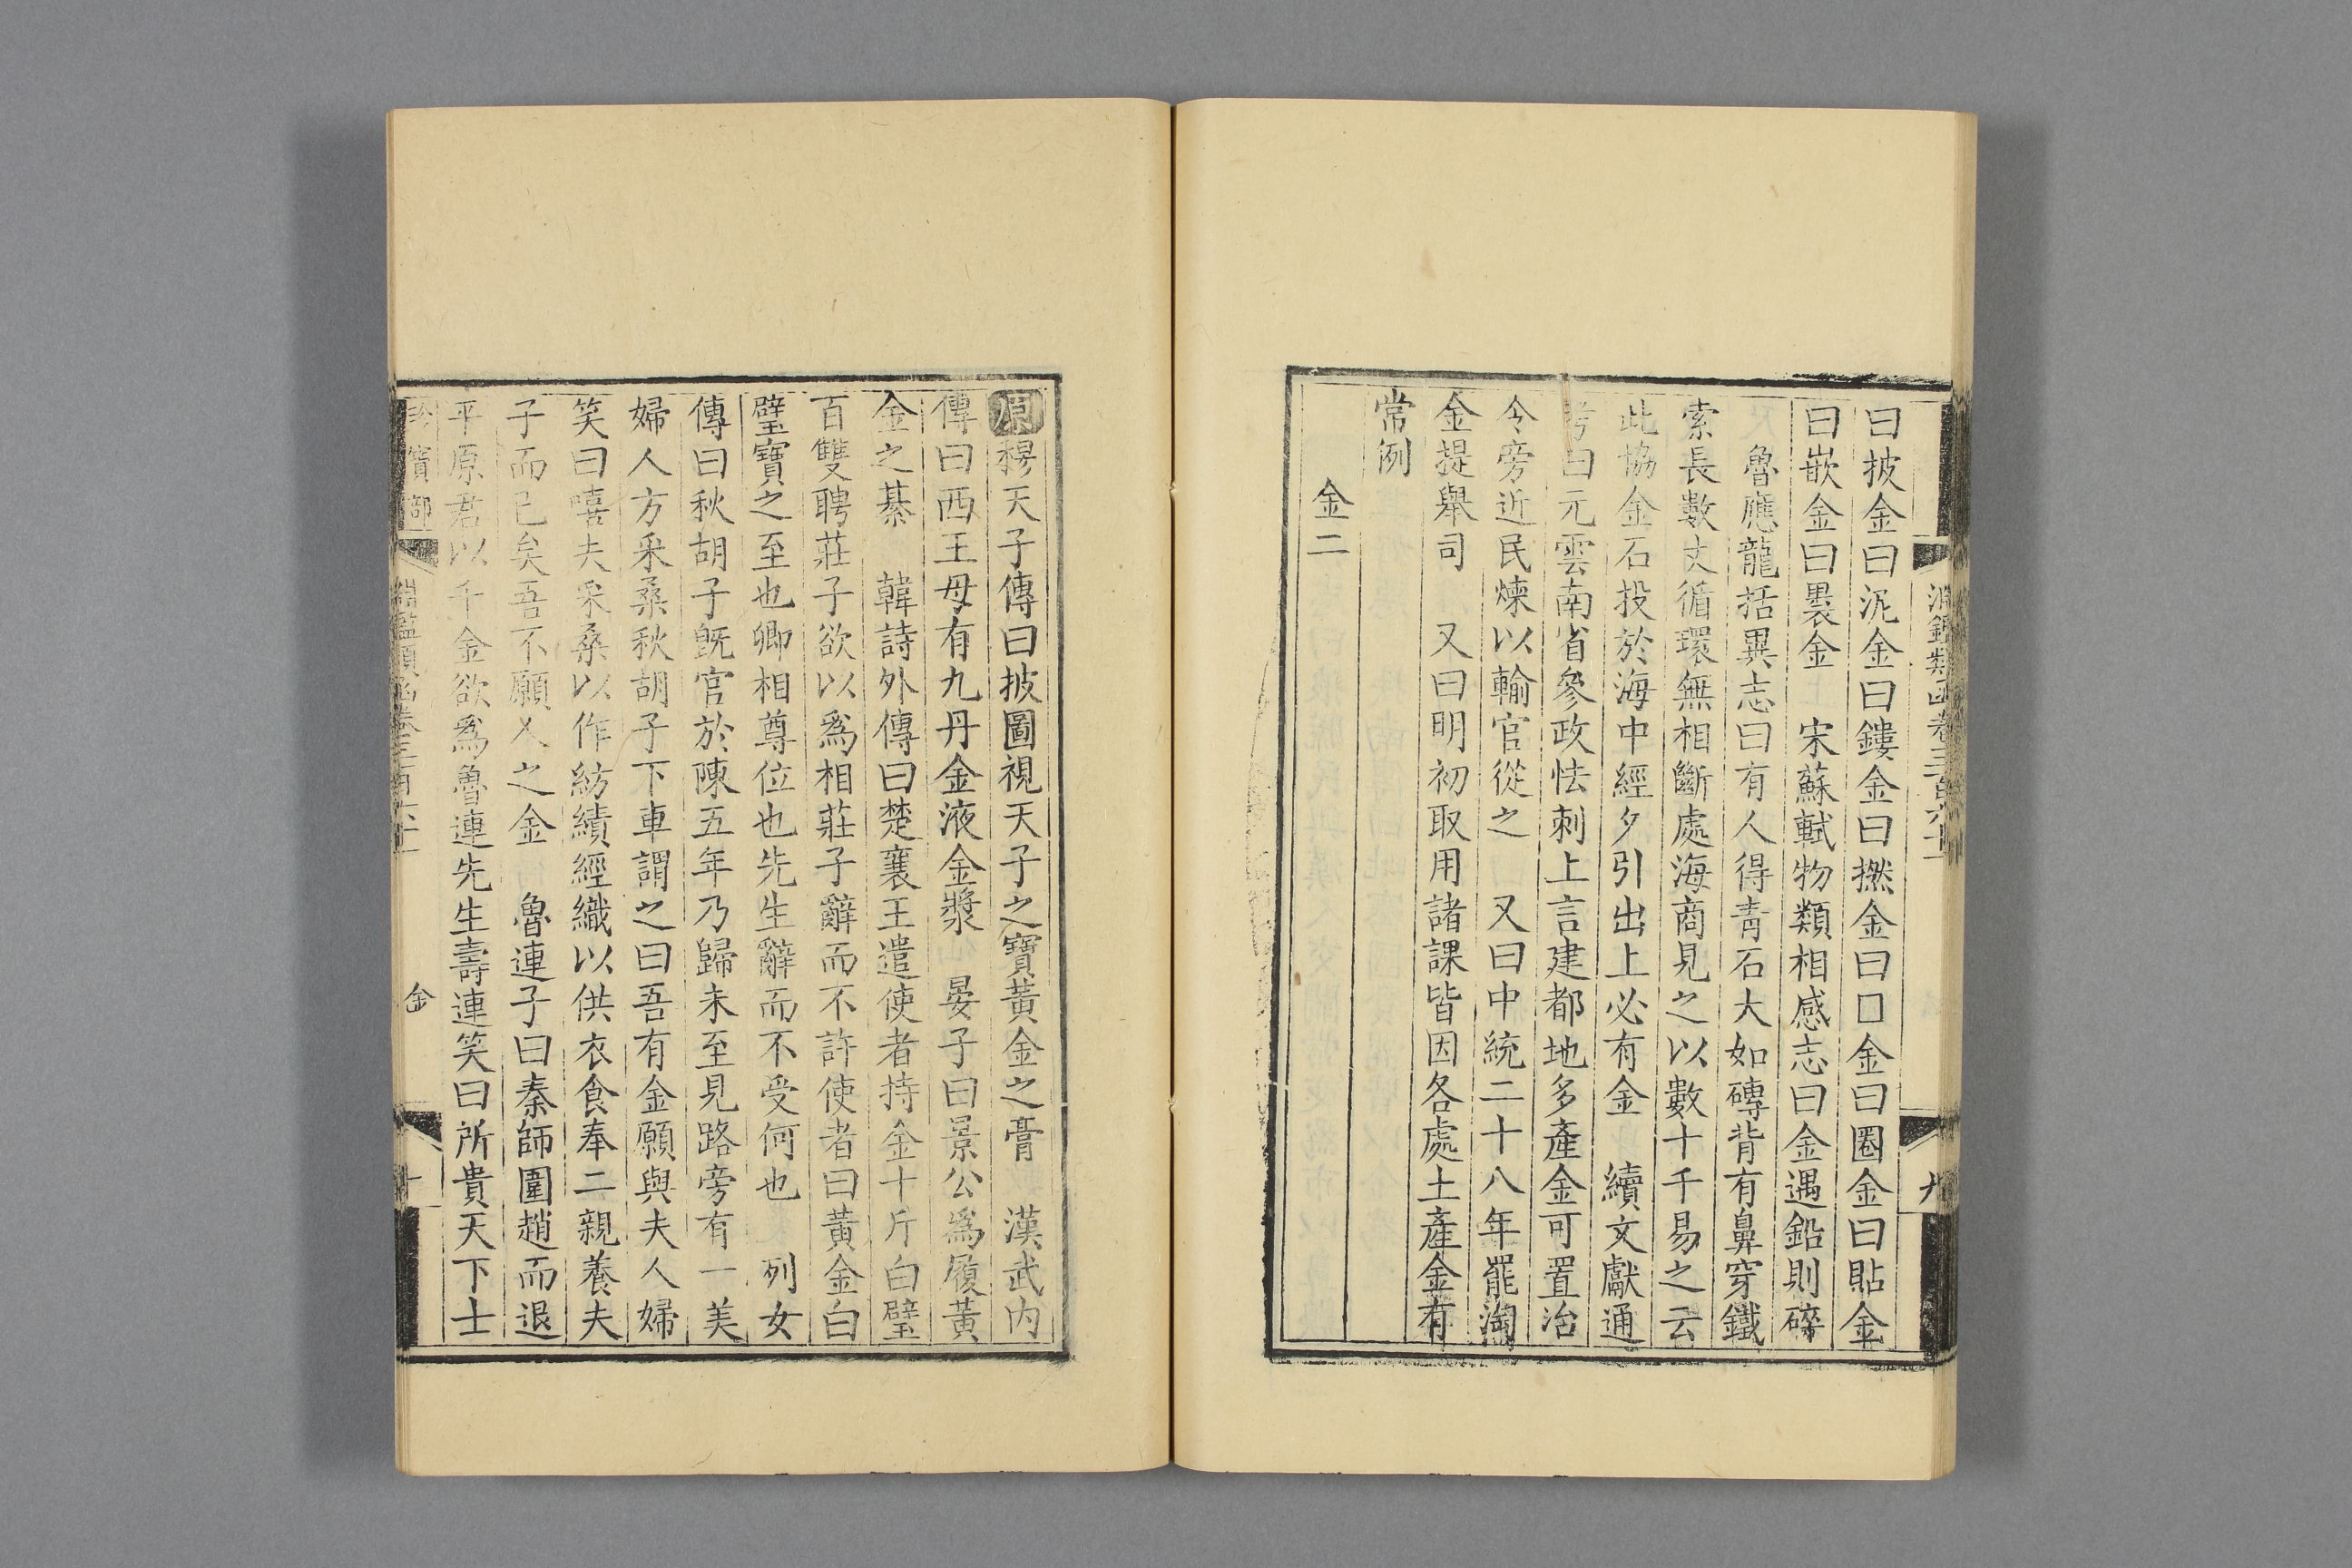 淵鑑類函卷三百六十一
九
曰披金曰泥金曰鏤金曰撚金曰口金曰圈金曰貼金
曰嵌金曰裹金 宋蘇軾物類相感志曰金遇鉛則碎
魯應龍括異志曰有人得青石大如磚背有鼻穿鐵
索長數丈循環無相斷處海商見之以數十千易之云
此協金石投於海中經夕引出上必有金 續文獻通
考曰元雲南省參政怯剌上言建都地多產金可置冶
令旁近民煉以輸官從之 又曰中統二十八年罷淘
金提舉司 又曰明初取用諸課皆因各處土產金有
常例
金二
原穆天子傳曰披圖視天子之寶黃金之膏 漢武內
傳曰西王母有九丹金液金漿 晏子曰景公爲履黃
金之綦 韓詩外傳曰楚襄王遣使者持金十斤白璧
百雙聘莊子欲以爲相莊子辭而不許使者曰黃金白
璧寶之至也卿相尊位也先生辭而不受何也 列女
傳曰秋胡子旣官於陳五年乃歸未至見路旁有一美
婦人方采桑秋胡子下車謂之曰吾有金願與夫人婦
笑曰嘻夫采桑以作紡績經織以供衣食奉二親養夫
子而已矣吾不願人之金 魯連子曰秦師圍趙而退
平原君以千金欲爲魯連先生壽連笑曰所貴天下士
珍寶部
淵鑑類函卷三百六十一
金
十